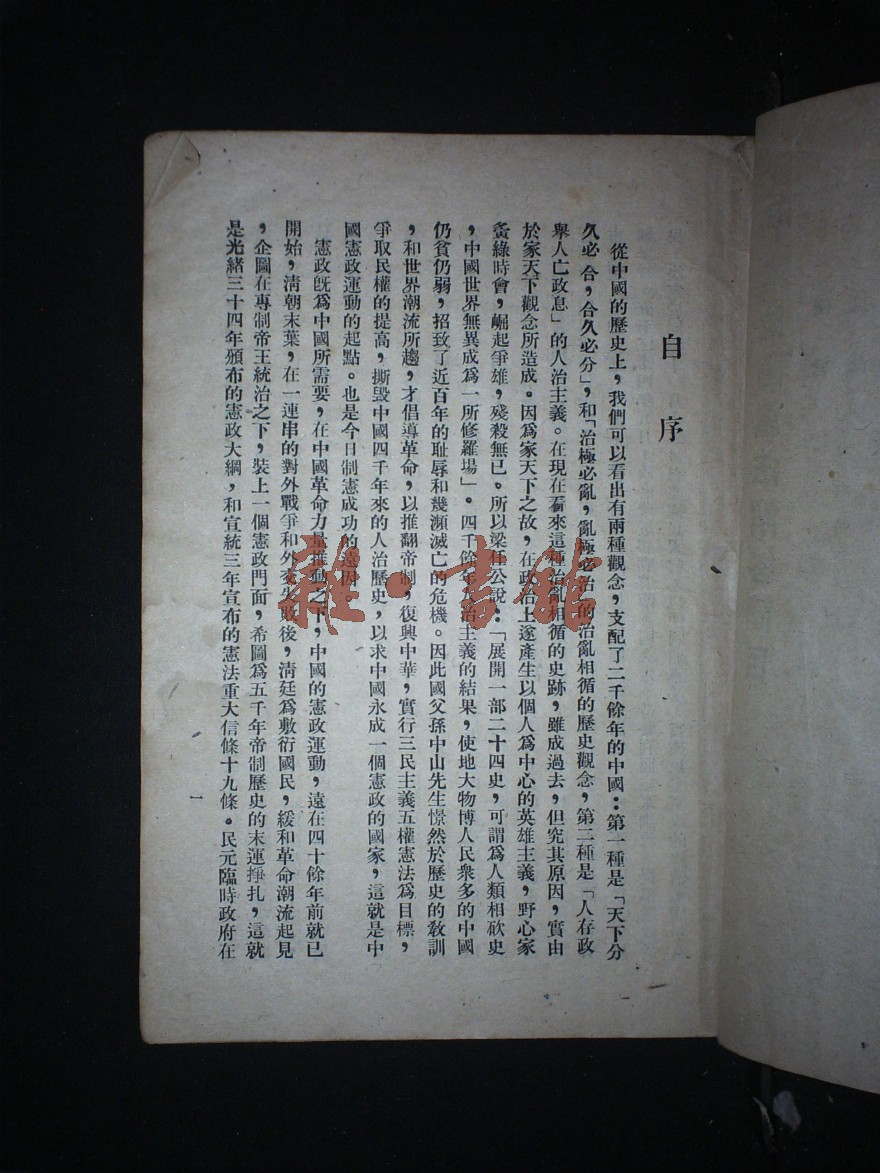 自序
從中國的歷史上，我們可以看出有兩種觀念，支配了二千餘年的中國：第一種是「天下分
久必合，合久必分」，和「治極必亂，亂極必治」的治亂相循的歷史觀念，第二種是「人存政
舉人亡政息」的人治主義。在現在看來這種治亂相循的史跡，雖成過去，但究其原因，實由
於家天下觀念所造成。因爲家天下之故，在政治上遂產生以個人爲中心的英雄主義，野心家
夤緣時會，崛起爭雄，殘殺無已。所以梁任公說：「展開一部二十四史，可謂爲人類相砍史
，中國世界無異成爲一所修羅場」。四千餘年人治主義的結果，使地大物博人民衆多的中國
仍貧仍弱，招致了近百年的恥辱和幾瀕滅亡的危機。因此國父孫中山先生憬然於歷史的敎訓
，和世界潮流所趨，才倡導革命，以推翻帝制，復興中華，實行三民主義五權憲法爲目標，
爭取民權的提高，撕毀中國四千年來的人治歷史，以求中國永成一個憲政的國家，這就是中
國憲政運動的起點。也是今日制憲成功的遠因。
憲政旣爲中國所需要，在中國革命力量推動之下，中國的憲政運動，遠在四十餘年前就已
開始，淸朝末葉，在一連串的對外戰爭和外交失敗後，淸廷爲敷衍國民，緩和革命潮流起見
，企圖在專制帝王統治之下，裝上一個憲政門面，希圖爲五千年帝制歷史的末運掙扎，這就
是光緒三十四年頒布的憲政大綱，和宣統三年宣布的憲法重大信條十九條。民元臨時政府在
一
雜·書館